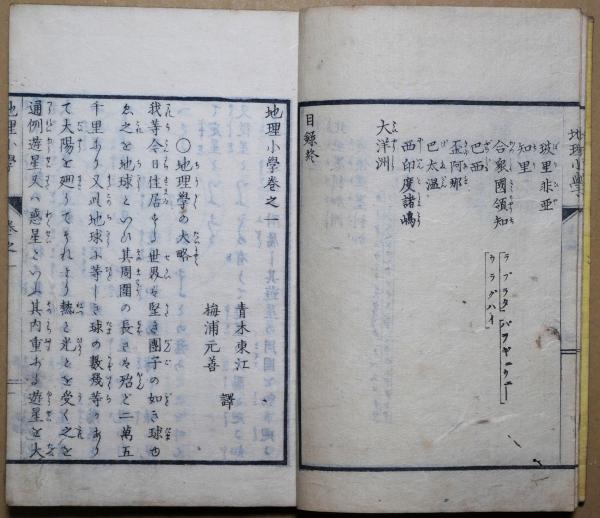 地理小學
玻里非亜
知里
合衆國領知
ラプラタ
パラギーウエー
ウラグハイ
巴西
歪阿那
巴太温
西印度諸嶋
大洋洲
目録終
地理小學巻之一
青木東江
梅浦元善
譯
○地理學の大略
我等今日住居する世界は堅き團子の如き球也
之を地球といひ其周圍の長さは殆ど二萬五
千里あり又此地球に等しき球の數幾等もあり
て大陽を廻りてそれより熱と光とを受く之を
通例遊星又ハ惑星といふ其内重なる遊星を大
地理小學
巻之一